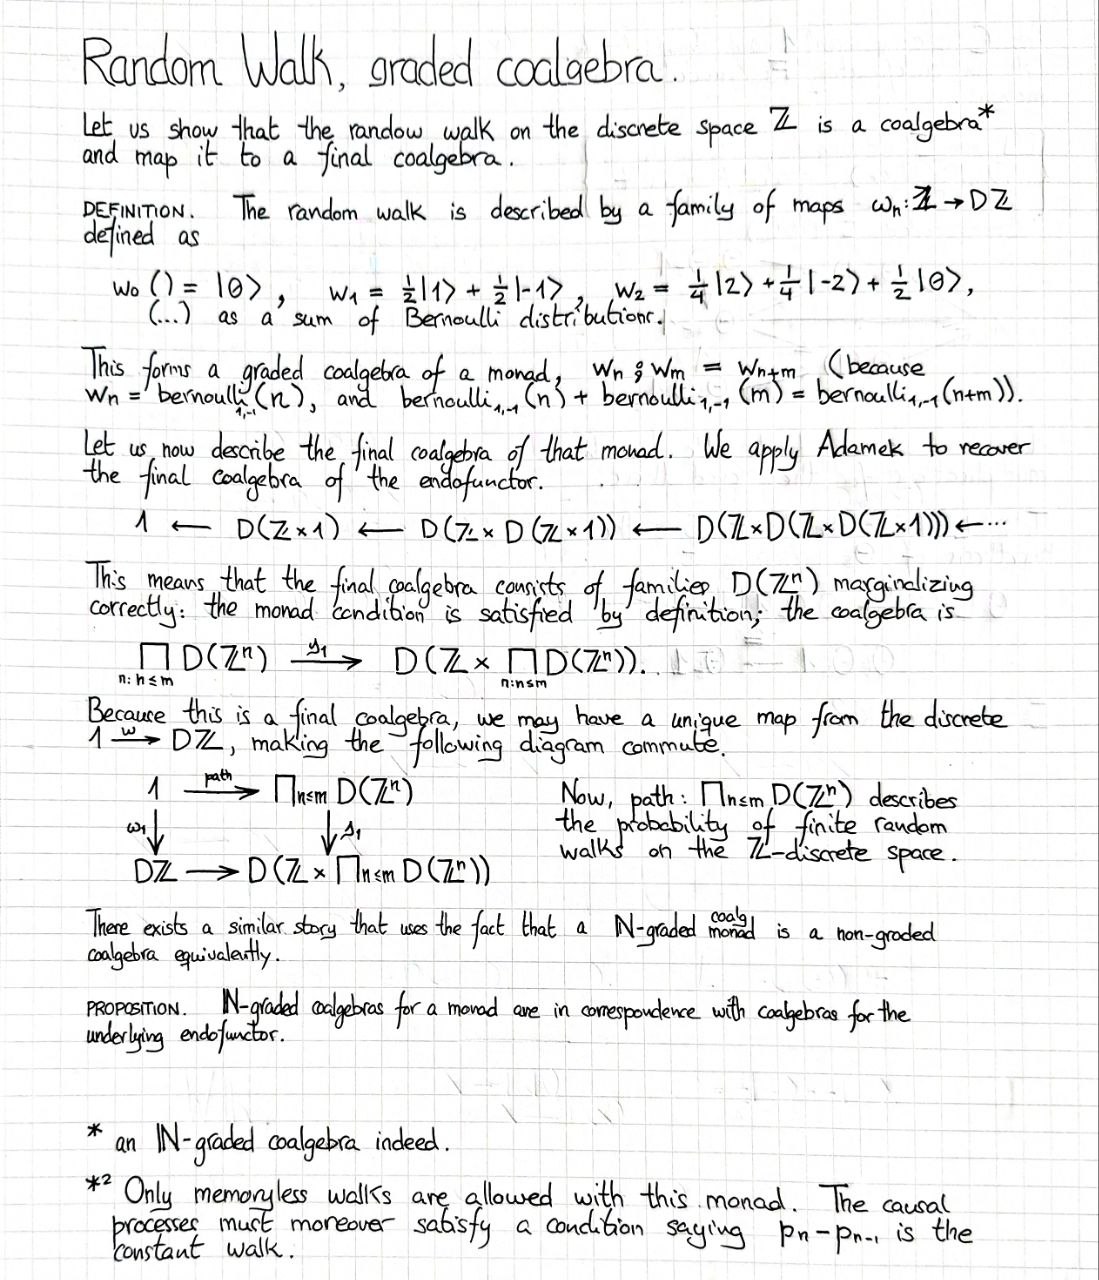 Random Walk, graded coalgebra.
Let us show that the randow walk on the discrete space ℤ is a coalgebra*
and map it to a final coalgebra.
DEFINITION. The random walk is described by a family of maps ωₙ: ℤ → Dℤ
defined as
w₀() = |0⟩, w₁ = ½|1⟩ + ½|-1⟩, w₂ = ¼|2⟩ + ¼|-2⟩ + ½|0⟩,
(...) as a sum of Bernoulli distributions.
This forms a graded coalgebra of a monad, wₙ ⨾ wₘ = wₙ₊ₘ (because
wₙ = bernoulli₁,₋₁(n), and bernoulli₁,₋₁(n) + bernoulli₁,₋₁(m) = bernoulli₁,₋₁(n+m)).
Let us now describe the final coalgebra of that monad. We apply Adamek to recover
the final coalgebra of the endofunctor.
1 ← D(ℤ×1) ← D(ℤ×D(ℤ×1)) ← D(ℤ×D(ℤ×D(ℤ×1))) ← ···
This means that the final coalgebra consists of families D(ℤⁿ) marginalizing
correctly: the monad condition is satisfied by definition; the coalgebra is
∏ D(ℤⁿ) → D(ℤ × ∏ D(ℤⁿ)).
n: n≤m n:n≤m
Because this is a final coalgebra, we may have a unique map from the discrete
1 –w→ Dℤ, making the following diagram commute.
1 –path→ ∏n≤m D(ℤⁿ)
ω₁↓ ↓
Dℤ → D(ℤ × ∏n≤m D(ℤⁿ))
Now, path: ∏n≤m D(ℤⁿ) describes
the probability of finite random
walks on the ℤ-discrete space.
There exists a similar story that uses the fact that a ℕ-graded coalg monad is a non-graded
coalgebra equivalently.
PROPOSITION. ℕ-graded coalgebras for a monad are in correspondence with coalgebras for the
underlying endofunctor.
* an ℕ-graded coalgebra indeed.
*² Only memoryless walks are allowed with this monad. The causal
processes must moreover satisfy a condition saying pₙ - pₙ₋₁ is the
constant walk.